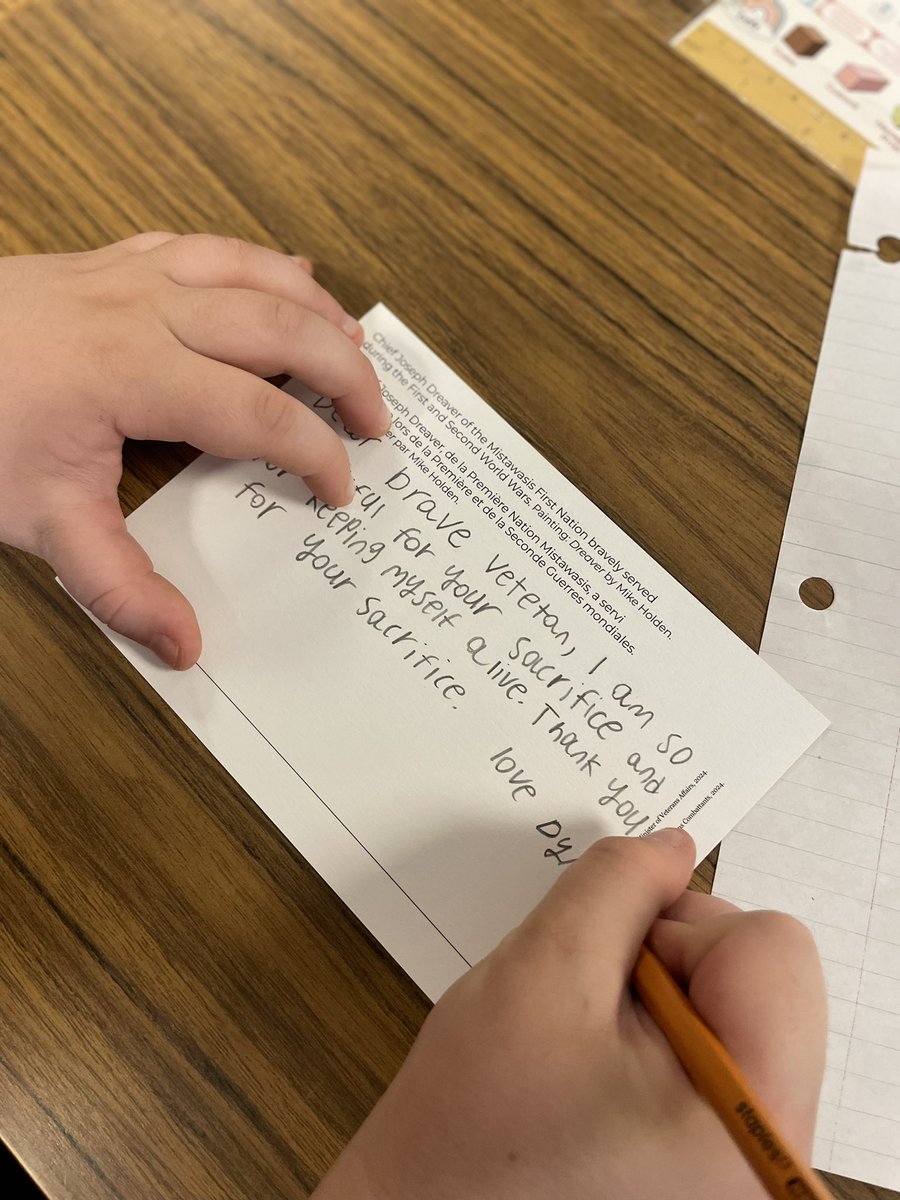 Chief Joseph Dreaver of the Mistawasis First Nation bravely served
during the First and Second World Wars. Painting: Dreaver by Mike Holden.
Joseph Dreaver, de la Première Nation Mistawasis, a servi
lors de la Première et de la Seconde Guerres mondiales.
par Mike Holden.
Dear brave Vetetan, I am so
for your sacrifice and
keeping myself alive. Thank you
for your sacrifice.
love
Minister of Veterans Affairs, 2024.
Combattants, 2024.
staples